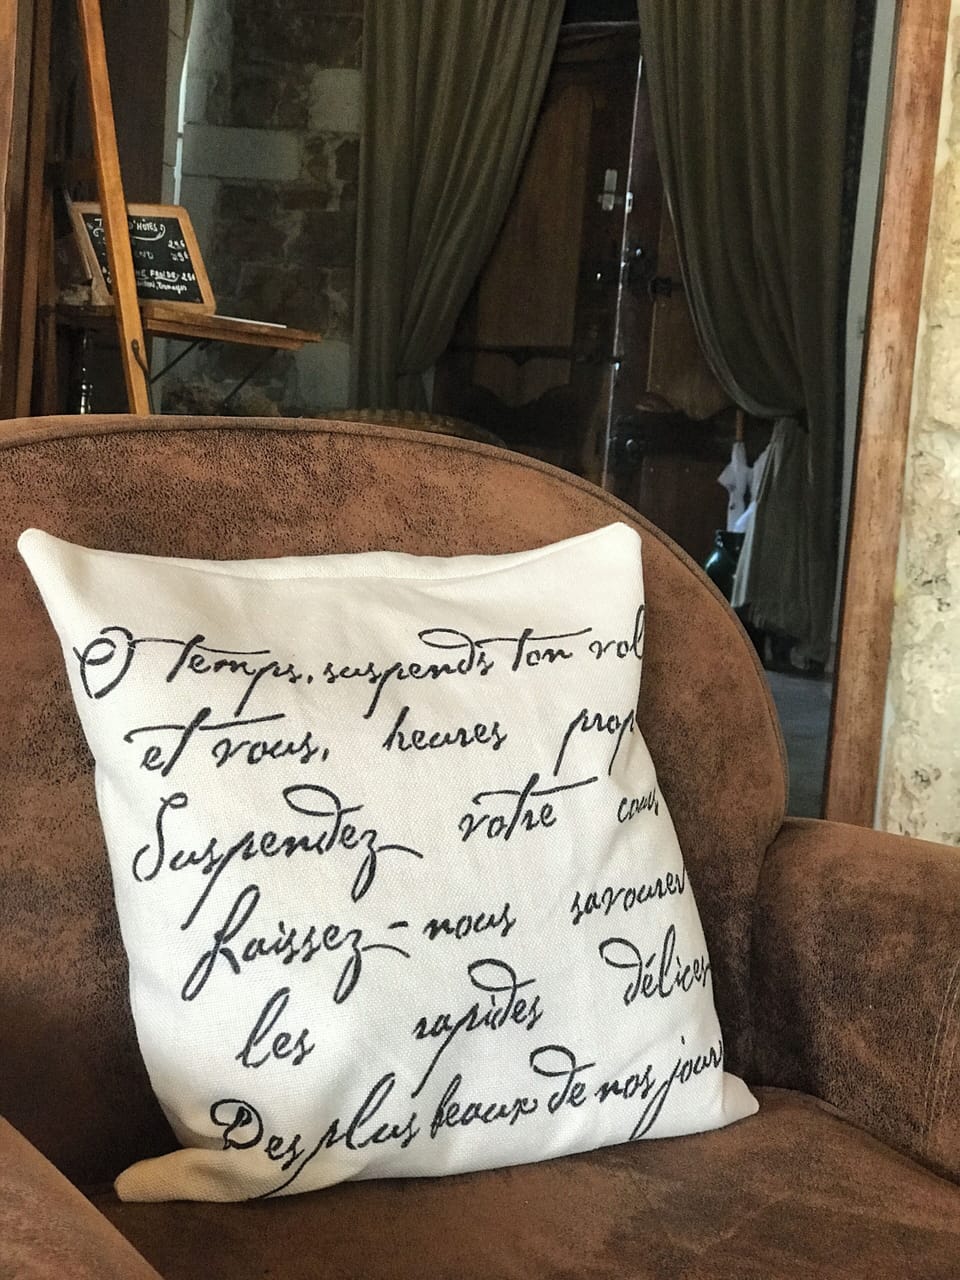 D'HÔTES
29€
FROIDE
Ô temps, suspends ton vol
et vous, heures prop
Suspendez votre cour
Laissez-nous savourer
les rapides délices
Des plus beaux de nos jours